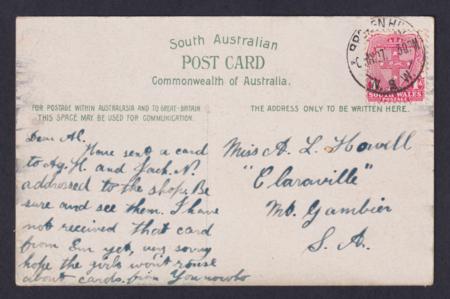 South Australian
POST CARD
Commonwealth of Australia.
FOR POSTAGE WITHIN AUSTRALASIA AND TO GREAT-BRITAIN
THIS SPACE MAY BE USED FOR COMMUNICATION.
THE ADDRESS ONLY TO BE WRITTEN HERE.
BROKEN HILL
N.S.W
SOUTH WALES
Dear Al.
Have sent a card
to Ag. H. and Jack. N.
addressed to the shop. Be
sure and see them. I have
not received that card
from Em yet, very sorry
hope the girls won't rouse
about cards. You know who
Miss A. L. Howell
"Claraville"
Mt. Gambier
S. A.